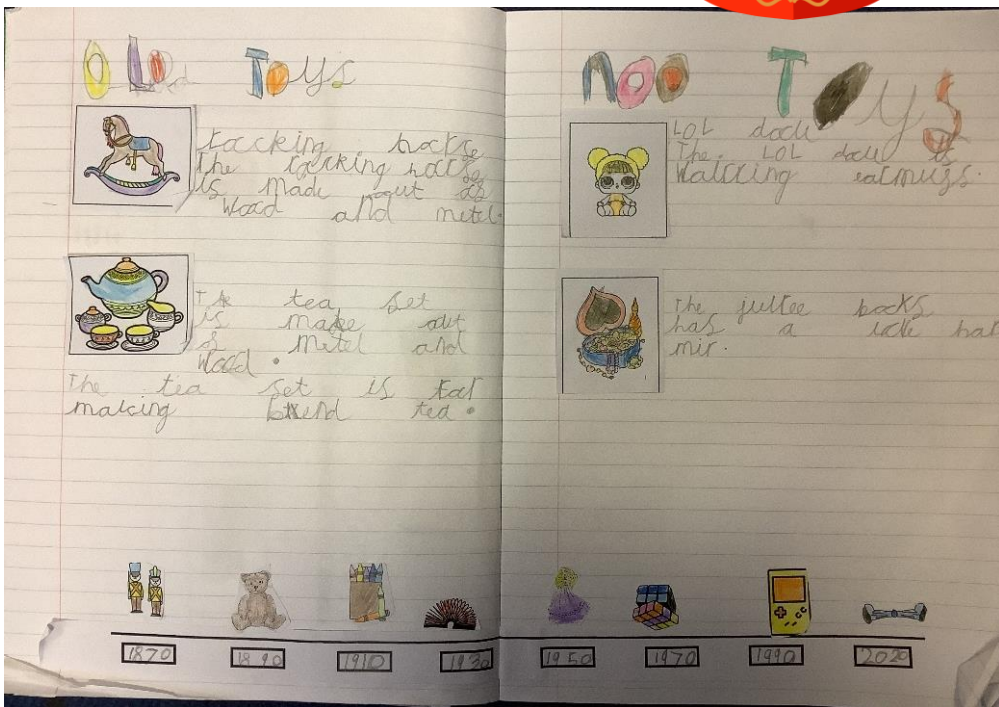 OLd Toys
rocking horse
The rocking horse
is made out of
wood and metel.
The tea set
is made out
of metel and
wood.
The tea set is for
making tea.
noo Toys
LOL doll
The LOL doll is
earmuffs.
The backs
has a
mir.
1870
1890
1910
1930
1950
1970
1990
2020